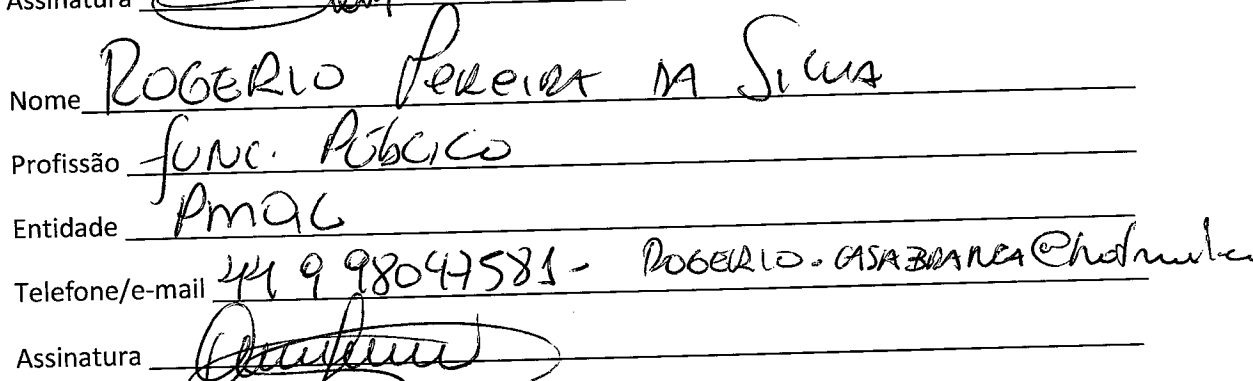 Assinatura
Nome ROGERIO PEREIRA DA SILVA
Profissão FUNC. PÚBLICO
Entidade
Telefone/e-mail 44 9 98047581 - ROGERIO.CASABRANCA@hotmail.c
Assinatura